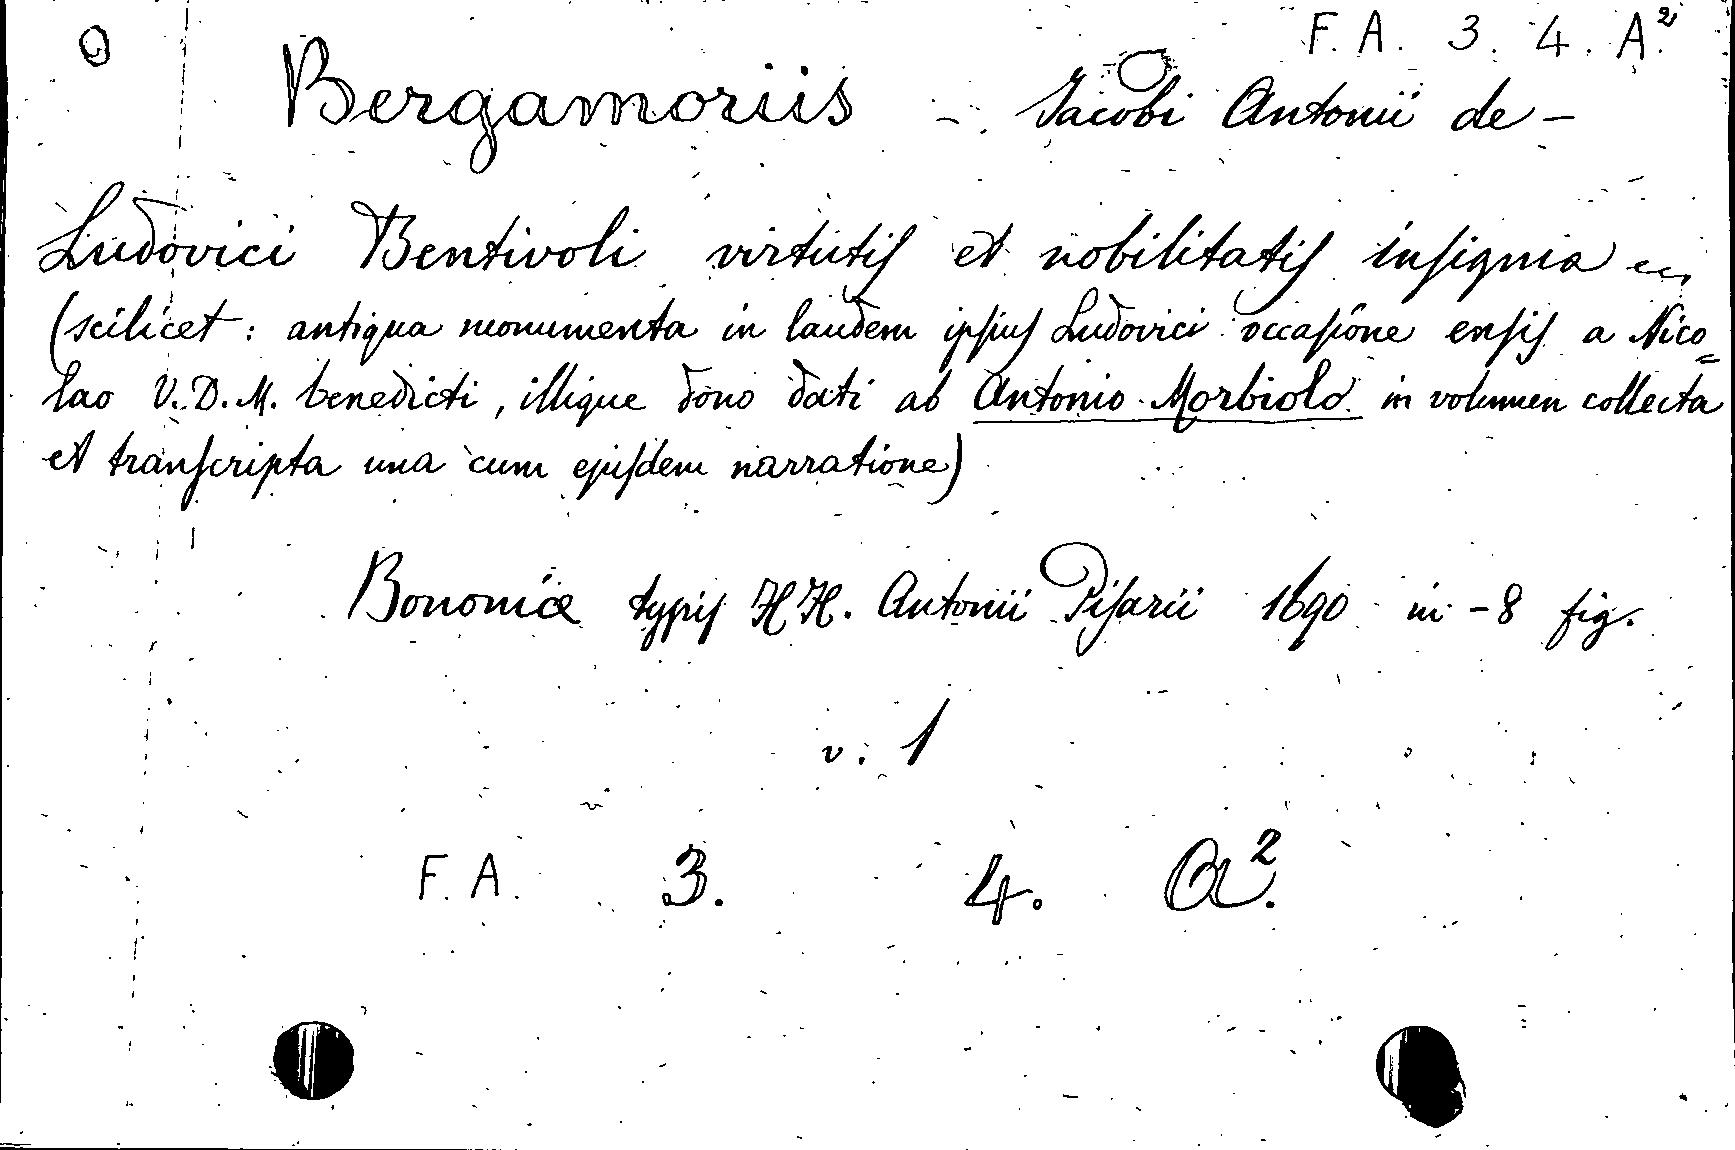 F. A. 3. 4. A.²
Bergamoriis - Jacobi Antonii de -
Ludovici Bentivoli virtutiſ et nobilitatiſ inſignia
(scilicet: antiqua monumenta in laudem ipſiuſ Ludovici occaſione enſiſ a Nico=
lao V. D. M. benedicti, illique dono dati ab Antonio Morbiolo in volumen collecta
et tranſcripta una cum ejuſdem narratione)
Bononiæ typiſ HH. Antonii Piſarii 1690 in - 8 fig.
v. 1
F. A. 3. 4. A².